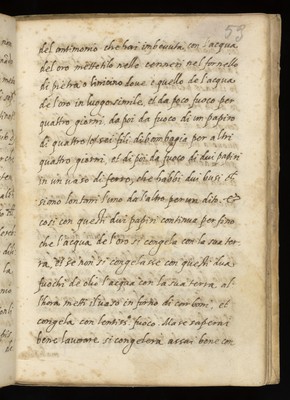 53
del antimonio che hai imbevuta con acqua
del oro mettetilo nelle cenneri nel fornello
di pietra o vivicino dove è quello de l'acqua
de l'oro in luogo simile, et da poco fuoco per
quattro giorni, da poi da fuoco di un papiro
di quattro o sei fili di bombagia per altri
quattro giorni, et di poi da fuoco di dui papiri
in un vaso di ferro, che habbi dui busi et
siano lontani l'uno da l'altro per un dito. Et
così con questi dui papiri continua per fino
che l'acqua de l'oro si congela con la sua ter=
ra, et se non si congelasse con questi dua
fuochi de olio l'acqua con la sua terra al=
l'hora metti il vaso in forno di carboni, et
congela con lentiss.o fuoco. Ma se saperai
bene lavorare si congelera assai bene con